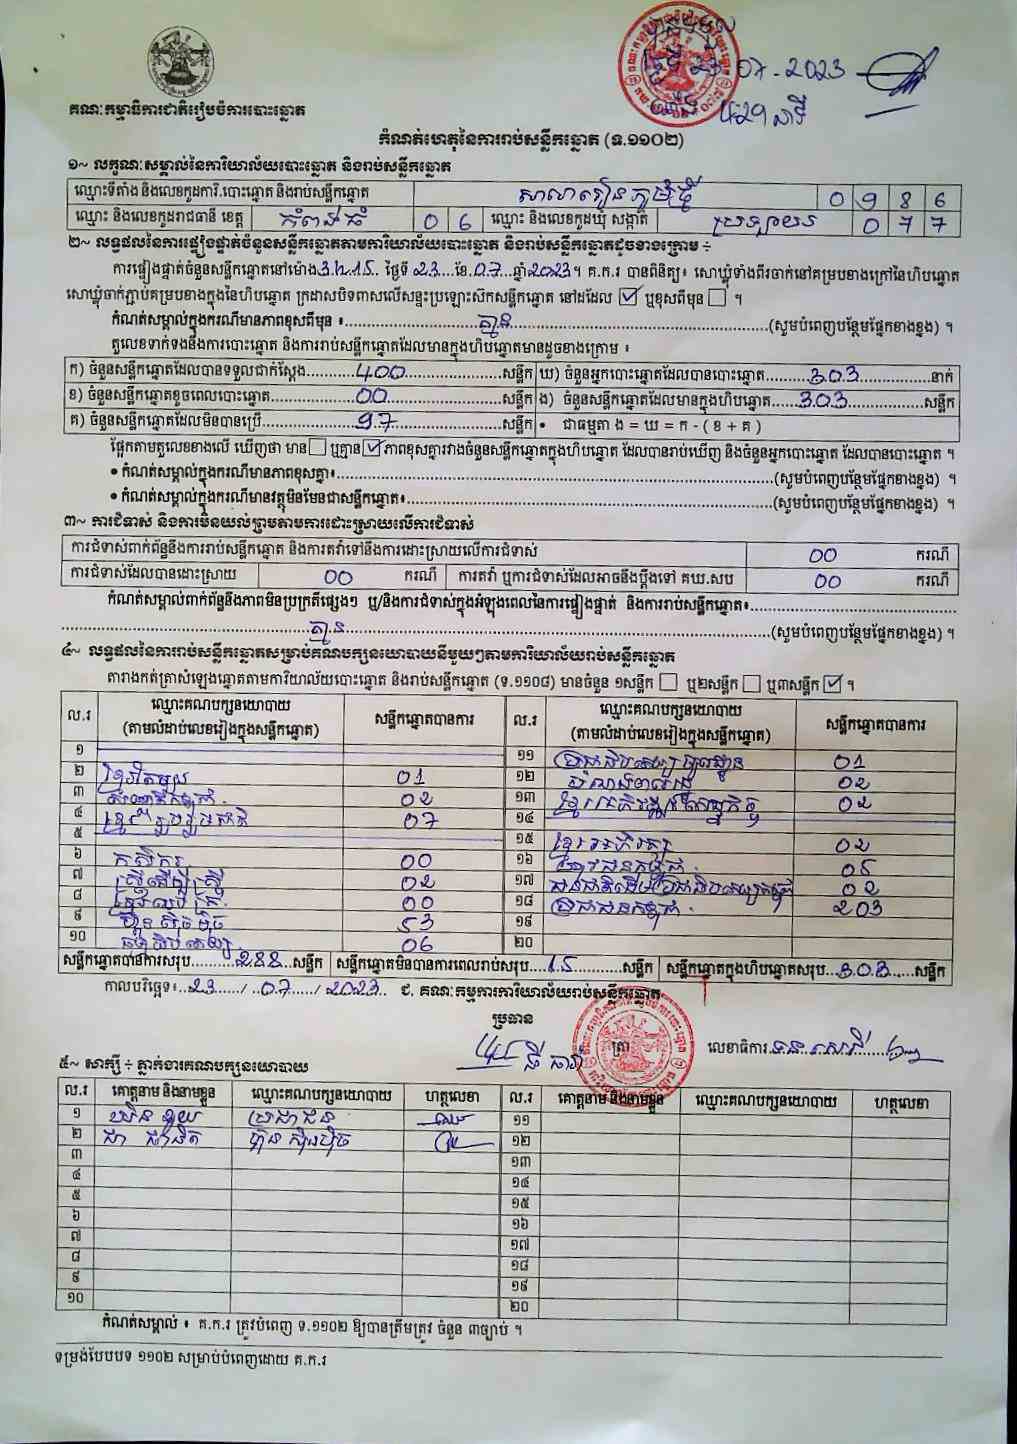 07-2023
គណៈកម្មាធិការជាតិរៀបចំការបោះឆ្នោត
4:29 នាទី
កំណត់ហេតុនៃការរាប់សន្លឹកឆ្នោត (ទ.១១០២)
១~ លក្ខណៈសម្គាល់នៃការិយាល័យបោះឆ្នោត និងរាប់សន្លឹកឆ្នោត
ឈ្មោះទីតាំង និងលេខកូដការិ.បោះឆ្នោត និងរាប់សន្លឹកឆ្នោត សាលារៀនភូមិថ្មី 0 9 8 6
ឈ្មោះ និងលេខកូដរាជធានី ខេត្ត កំពង់ធំ 0 6 ឈ្មោះ និងលេខកូដឃុំ សង្កាត់ ប្រឡាយ 0 7 7
២~ លទ្ធផលនៃការផ្ទៀងផ្ទាត់ចំនួនសន្លឹកឆ្នោតតាមការិយាល័យបោះឆ្នោត និងរាប់សន្លឹកឆ្នោតដូចខាងក្រោម ÷
ការផ្ទៀងផ្ទាត់ចំនួនសន្លឹកឆ្នោតនៅម៉ោង 3.h.15 ថ្ងៃទី 23 ខែ 07 ឆ្នាំ 2023។ គ.ក.រ បានពិនិត្យ៖ សោឃ្លុំទាំងពីរចាក់នៅគម្របខាងក្រៅនៃហិបឆ្នោត
សោឃ្លុំចាក់ភ្ជាប់គម្របខាងក្នុងនៃហិបឆ្នោត ក្រដាសបិទពាសលើសន្ទះប្រឡោះស៊កសន្លឹកឆ្នោត នៅដដែល ☑ ឬខុសពីមុន ☐ ។
កំណត់សម្គាល់ក្នុងករណីមានភាពខុសពីមុន ៖ គ្មាន (សូមបំពេញបន្ថែមផ្នែកខាងខ្នង) ។
តួលេខទាក់ទងនឹងការបោះឆ្នោត និងការរាប់សន្លឹកឆ្នោតដែលមានក្នុងហិបឆ្នោតមានដូចខាងក្រោម ៖
ក) ចំនួនសន្លឹកឆ្នោតដែលបានទទួលជាក់ស្តែង 400 សន្លឹក ឃ) ចំនួនអ្នកបោះឆ្នោតដែលបានបោះឆ្នោត 303 នាក់
ខ) ចំនួនសន្លឹកឆ្នោតខូចពេលបោះឆ្នោត 00 សន្លឹក ង) ចំនួនសន្លឹកឆ្នោតដែលមានក្នុងហិបឆ្នោត 303 សន្លឹក
គ) ចំនួនសន្លឹកឆ្នោតដែលមិនបានប្រើ 97 សន្លឹក • ជាធម្មតា ង = ឃ = ក - ( ខ + គ )
ផ្អែកតាមតួលេខខាងលើ ឃើញថា មាន ☐ ឬគ្មាន ☑ ភាពខុសគ្នារវាងចំនួនសន្លឹកឆ្នោតក្នុងហិបឆ្នោត ដែលបានរាប់ឃើញ និងចំនួនអ្នកបោះឆ្នោត ដែលបានបោះឆ្នោត ។
• កំណត់សម្គាល់ក្នុងករណីមានភាពខុសគ្នា៖ (សូមបំពេញបន្ថែមផ្នែកខាងខ្នង) ។
• កំណត់សម្គាល់ក្នុងករណីមានវត្ថុមិនមែនជាសន្លឹកឆ្នោត៖ (សូមបំពេញបន្ថែមផ្នែកខាងខ្នង) ។
៣~ ការជំទាស់ និងការមិនយល់ព្រមតាមការដោះស្រាយលើការជំទាស់
ការជំទាស់ពាក់ព័ន្ធនឹងការរាប់សន្លឹកឆ្នោត និងការតវ៉ាទៅនឹងការដោះស្រាយលើការជំទាស់ 00 ករណី
ការជំទាស់ដែលបានដោះស្រាយ 00 ករណី ការតវ៉ា ឬការជំទាស់ដែលអាចនឹងប្តឹងទៅ គឃ.សប 00 ករណី
កំណត់សម្គាល់ពាក់ព័ន្ធនឹងភាពមិនប្រក្រតីផ្សេងៗ ឬ/និងការជំទាស់ក្នុងអំឡុងពេលនៃការផ្ទៀងផ្ទាត់ និងការរាប់សន្លឹកឆ្នោត៖
គ្មាន (សូមបំពេញបន្ថែមផ្នែកខាងខ្នង) ។
៤~ លទ្ធផលនៃការរាប់សន្លឹកឆ្នោតសម្រាប់គណបក្សនយោបាយនីមួយៗតាមការិយាល័យរាប់សន្លឹកឆ្នោត
តារាងកត់ត្រាសំឡេងឆ្នោតតាមការិយាល័យបោះឆ្នោត និងរាប់សន្លឹកឆ្នោត (ទ.១១០៨) មានចំនួន ១សន្លឹក ☐ ឬ២សន្លឹក ☐ ឬ៣សន្លឹក ☑ ។
ល.រ ឈ្មោះគណបក្សនយោបាយ (តាមលំដាប់លេខរៀងក្នុងសន្លឹកឆ្នោត) សន្លឹកឆ្នោតបានការ ល.រ ឈ្មោះគណបក្សនយោបាយ (តាមលំដាប់លេខរៀងក្នុងសន្លឹកឆ្នោត) សន្លឹកឆ្នោតបានការ
១ ១១ 01
២ ខ្មែរតែមួយ 01 ១២ 02
៣ 02 ១៣ ខ្មែរអភិវឌ្ឍន៍សេដ្ឋកិច្ច 02
៤ ខ្មែររួបរួមជាតិ 07 ១៤
៥ ១៥ 02
៦ កសិករ 00 ១៦ យុវជនកម្ពុជា 05
៧ ស្រ្តីដើម្បីស្រ្តី 02 ១៧ 02
៨ 00 ១៨ ប្រជាជនកម្ពុជា 203
៩ ហ៊្វុនស៊ិនប៉ិច 53 ១៩
១០ ធម្មាធិបតេយ្យ 06 ២០
សន្លឹកឆ្នោតបានការសរុប 288 សន្លឹក សន្លឹកឆ្នោតមិនបានការពេលរាប់សរុប 15 សន្លឹក សន្លឹកឆ្នោតក្នុងហិបឆ្នោតសរុប 303 សន្លឹក
កាលបរិច្ឆេទ៖ 23 / 07 / 2023 ជ. គណៈកម្មការការិយាល័យរាប់សន្លឹកឆ្នោត
ប្រធាន
ត្រា លេខាធិការ
៥~ សាក្សី ÷ ភ្នាក់ងារគណបក្សនយោបាយ
ល.រ គោត្តនាម និងនាមខ្លួន ឈ្មោះគណបក្សនយោបាយ ហត្ថលេខា ល.រ គោត្តនាម និងនាមខ្លួន ឈ្មោះគណបក្សនយោបាយ ហត្ថលេខា
១ ប្រជាជន ១១
២ ហ៊្វុនស៊ិនប៉ិច ១២
៣ ១៣
៤ ១៤
៥ ១៥
៦ ១៦
៧ ១៧
៨ ១៨
៩ ១៩
១០ ២០
កំណត់សម្គាល់ ៖ គ.ក.រ ត្រូវបំពេញ ទ.១១០២ ឱ្យបានត្រឹមត្រូវ ចំនួន ៣ច្បាប់ ។
ទម្រង់បែបបទ ១១០២ សម្រាប់បំពេញដោយ គ.ក.រ